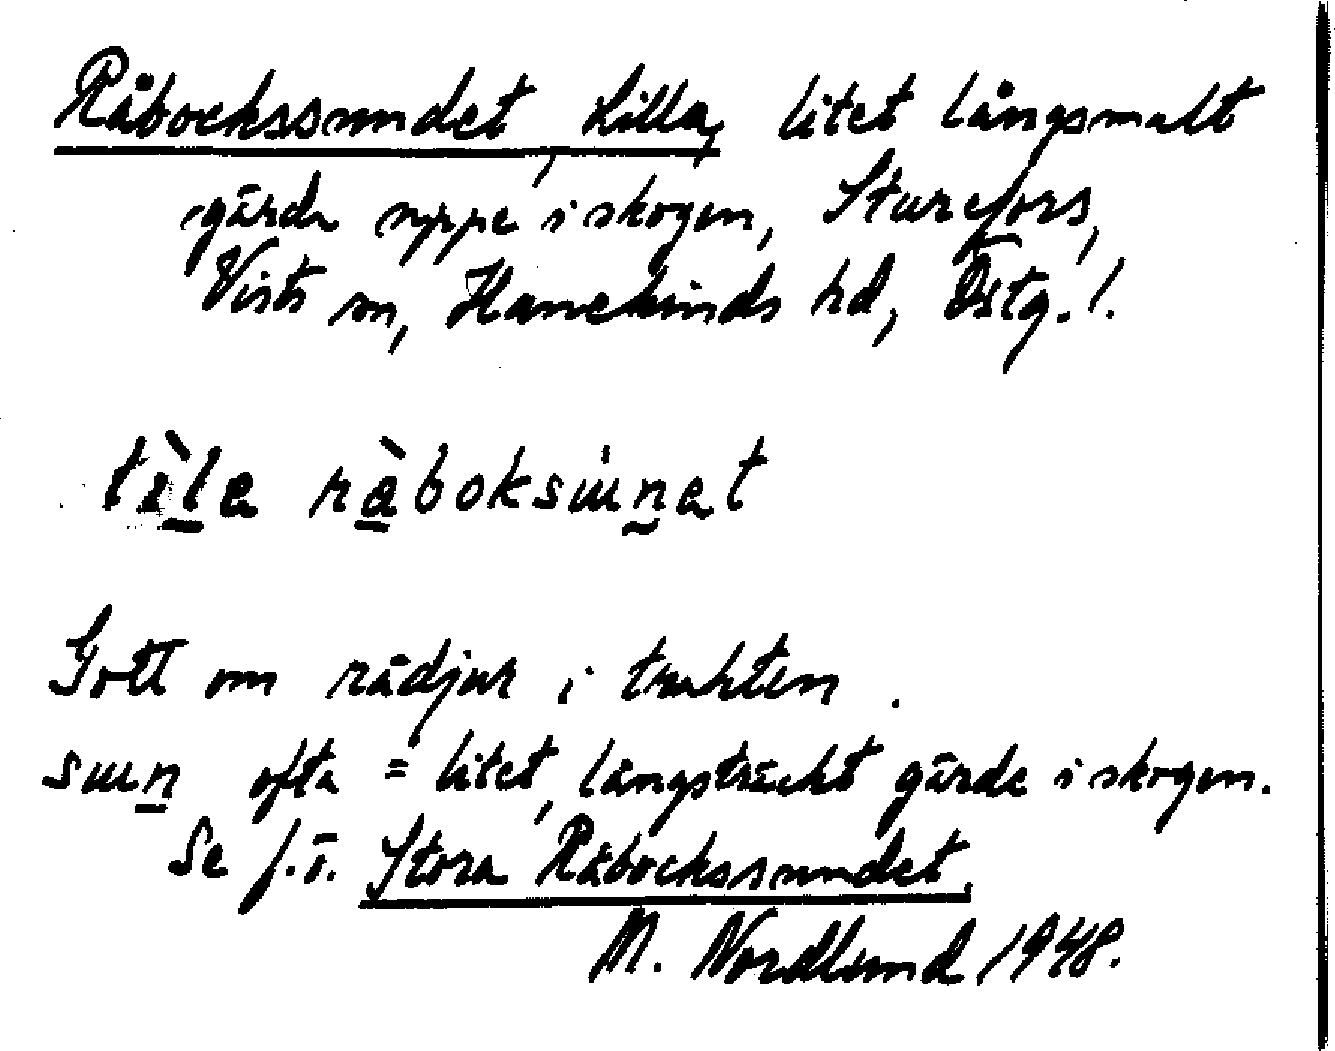 Råbockssundet, Lilla, litet långsmalt
gärde uppe i skogen, Sturefors,
Vists sn, Hanekinds hd, Östg.!.
lìla ràboksɯnət
Gott om rådjur i trakten.
sɯn ofta = litet, långsträckt gärde i skogen.
Se f.ö. Stora Råbockssundet.
M. Nordlund 1948.